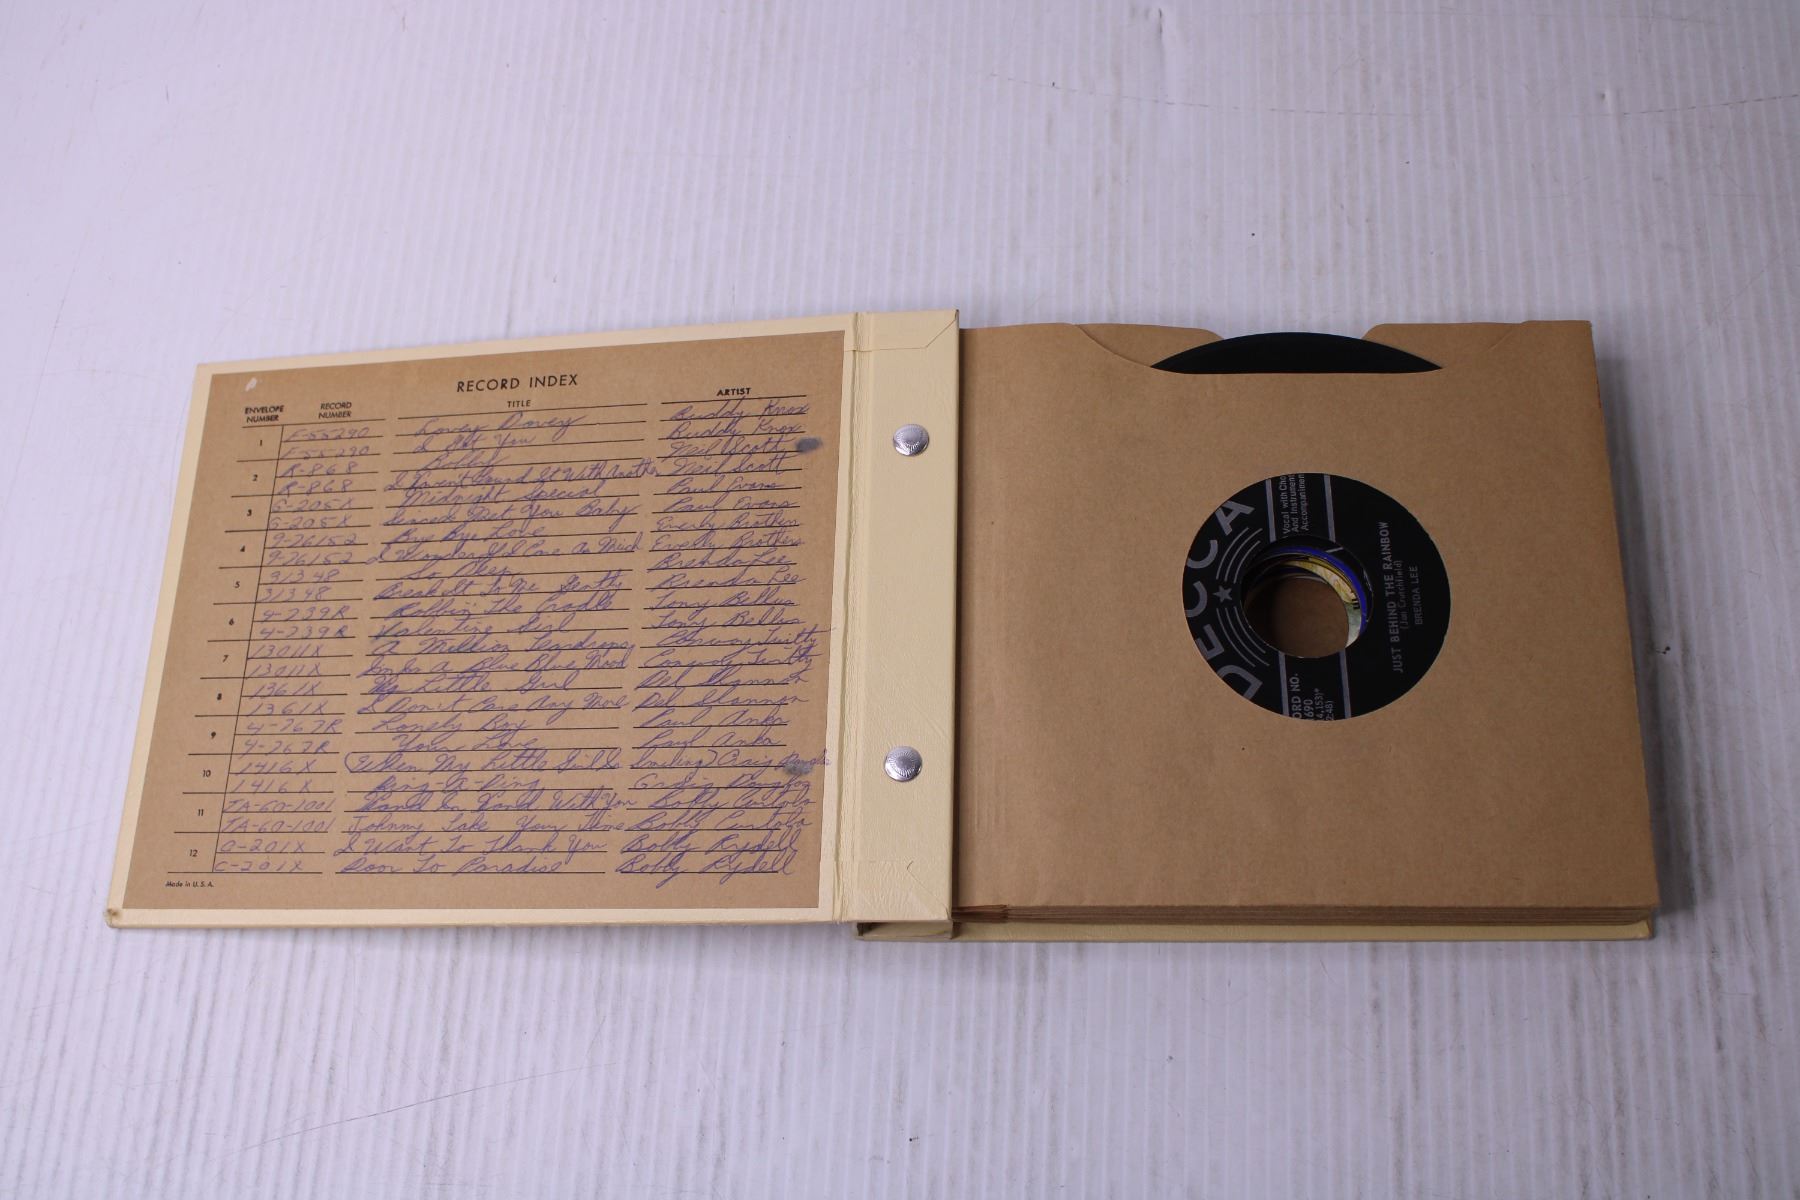 RECORD INDEX
ENVELOPE NUMBER RECORD NUMBER TITLE ARTIST
1 F-55290 Lovey Dovey Buddy Knox
F-55290 I Got You Buddy Knox
2 R-868 Bobby Neil Scott
R-868 I Haven't Found It With Another Neil Scott
3 G-205X Midnight Special Paul Evans
G-205X Since I Met You Baby Paul Evans
4 9-76152 Bye Bye Love Everly Brothers
9-76152 I Wonder If I Care As Much Everly Brothers
5 31348 So Deep Brenda Lee
31348 Break It To Me Gently Brenda Lee
6 4-239R Robbin' The Cradle Tony Bellus
4-239R Valentine Girl Tony Bellus
7 13011X A Million Teardrops Conway Twitty
13011X In A Blue Blue Mood Conway Twitty
8 1361X My Little Girl Del Shannon
1361X I Don't Care Any More Del Shannon
9 4-767R Lonely Boy Paul Anka
4-767R Your Love Paul Anka
10 1416X (When My Little Girl Is Smiling) Craig Douglas
1416X Ring-A-Ding Craig Douglas
11 TA-60-1001 Hand In Hand With You Bobby Curtola
TA-60-1001 Johnny Take Your Time Bobby Curtola
12 C-201X I Want To Thank You Bobby Rydell
C-201X Door To Paradise Bobby Rydell
Made in U. S. A.
DECCA
Vocal with Cho
And Instrument
Accompanimen
ORD NO.
690
4,153)*
2:48)
JUST BEHIND THE RAINBOW
(Jan Crutchfield)
BRENDA LEE